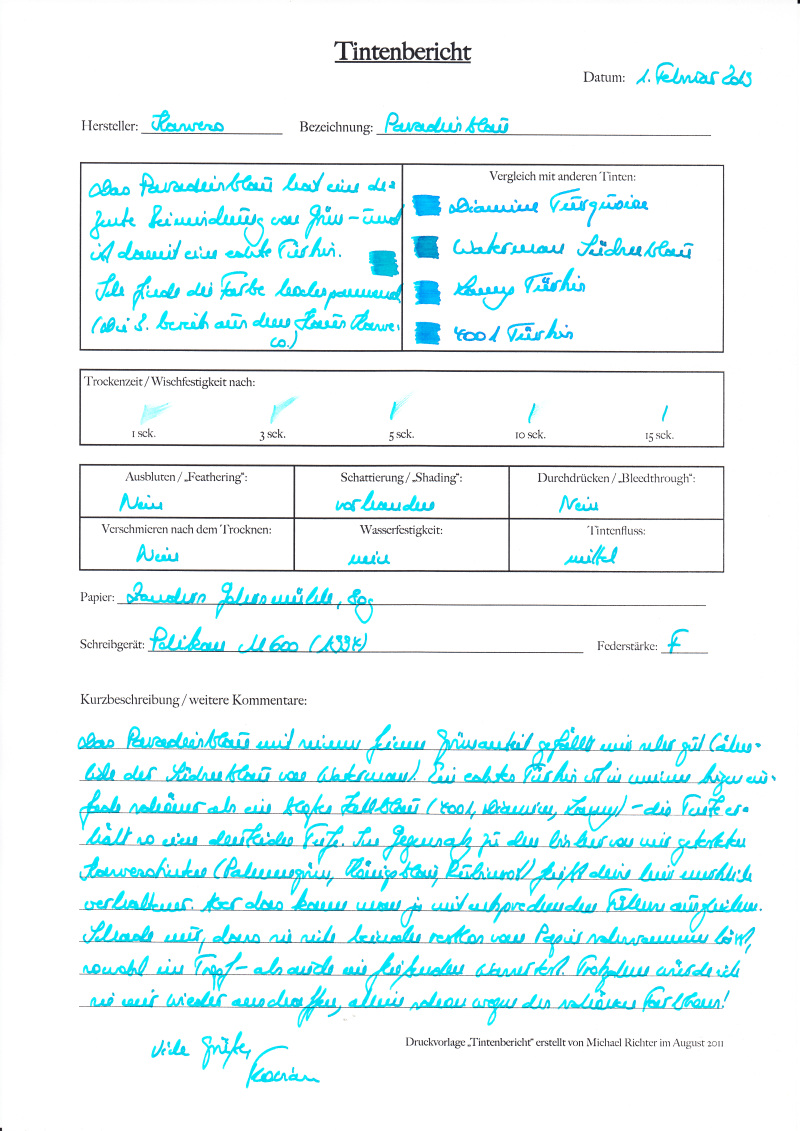 Tintenbericht
Datum: 1. Februar 2013
Hersteller: Kaweco Bezeichnung: Paradiesblau
Das Paradiesblau hat eine de-
zente Beimischung von Grün- und
ist damit eine echte Türkis.
Ich finde die Farbe hochspannend
(Die 3. bereits aus dem Hause Kawe-
co.)
Vergleich mit anderen Tinten:
Diamine Turquoise
Waterman Südseeblau
Lamy Türkis
4001 Türkis
Trockenzeit / Wischfestigkeit nach:
1 sek. 3 sek. 5 sek. 10 sek. 15 sek.
Ausbluten / „Feathering“: Schattierung / „Shading“: Durchdrücken / „Bleedthrough“:
Nein vorhanden Nein
Verschmieren nach dem Trocknen: Wasserfestigkeit: Tintenfluss:
Nein nein mittel
Papier: Zanders Gohrsmühle, 80g
Schreibgerät: Pelikan M600 Federstärke: F
Kurzbeschreibung / weitere Kommentare:
Das Paradiesblau mit seinem feinen Grünanteil gefällt mir sehr gut (ähn-
lich der Südseeblau von Waterman). Ein echtes Türkis ist in meinen Augen ein-
fach schöner als ein Hellblau (4001, Diamine, Lamy) - die Tinte er-
hält so eine deutliche Tiefe. Im Gegensatz zu den bisher von mir getesteten
Kawecotinten (Palmengrün, Königsblau, Rubinrot) fließt diese hier merklich
verhaltener. Aber das kann man ja mit entsprechenden Füllern ausgleichen.
Schade nur, dass sie sich beinahe restlos vom Papier schwemmen lässt,
sowohl im Tropf- als auch im fließenden Wassertest. Trotzdem würde ich
sie mir wieder anschaffen, allein schon wegen des schönen Farbtons!
Viele Grüße,
Druckvorlage „Tintenbericht“ erstellt von Michael Richter im August 2011